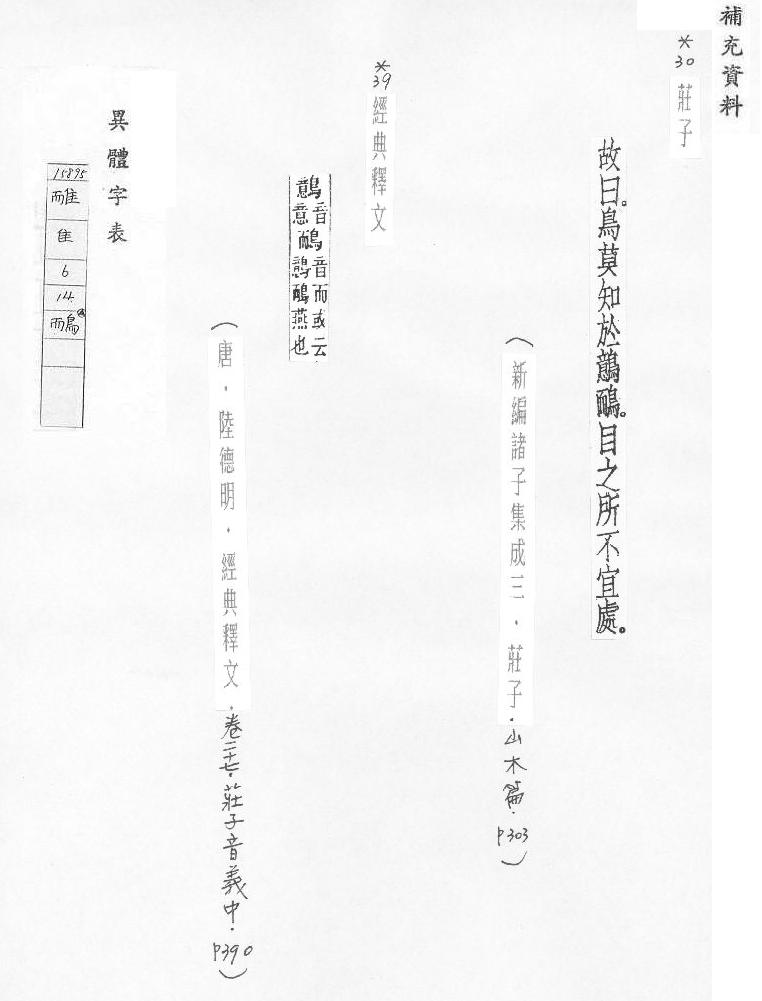 補充資料
*30 莊子
故曰。鳥莫知於鷾鴯。目之所不宜處。
(新編諸子集成三．莊子．山木篇．P303)
*39 經典釋文
鷾音意鴯音而或云
鷾鴯燕也
(唐．陸德明．經典釋文．卷二十七．莊子音義中．P390)
異體字表
15895
隹
6
14
鴯